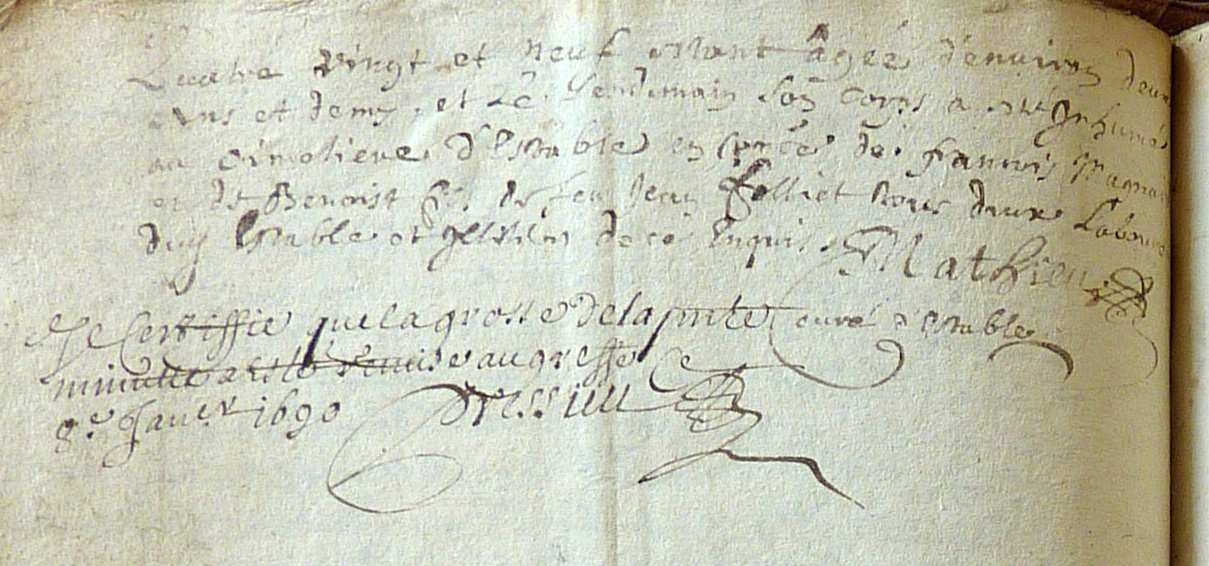 Quatre vingt et neuf estant âgée d'environ deux
ans et demy, et le lendemain son corps a esté Inhumé
au Cimetiere d'Estable en p̄nce de francois Magnai
et de Benoist fils de feu Jean folliet tous deux Laboure
duy Estable et Illitéres de ce Enquis Mathieu
curé d'Estable
Je Certiffie que la grosse de la pnte
minutte a esté Remise au greffe Ce
8e Janer 1690 Dressieu